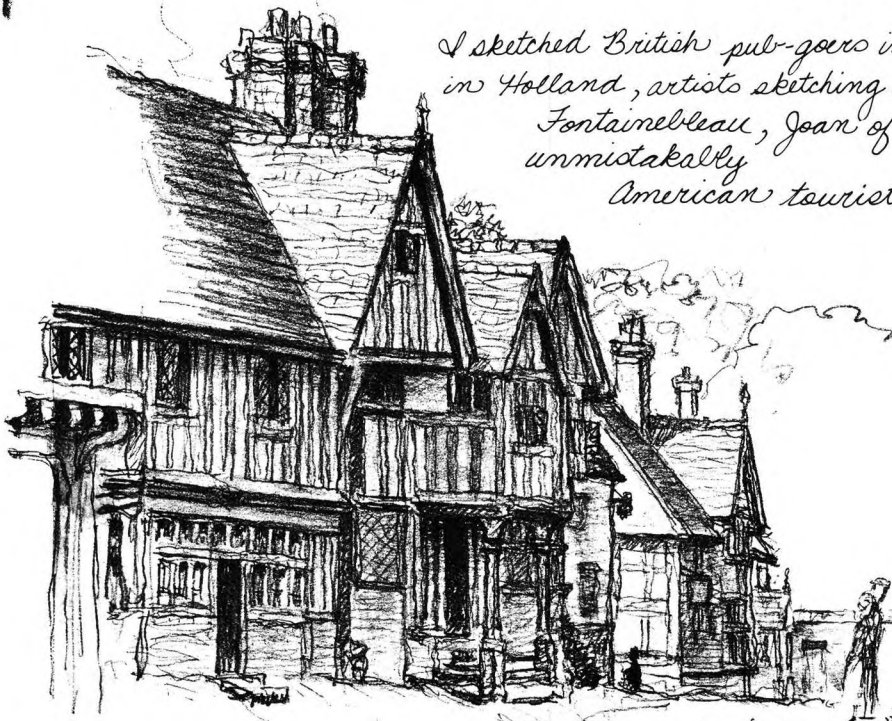 I sketched British pub-goers
in Holland, artists sketching
Fontainebleau, Joan of
unmistakably
American tourist